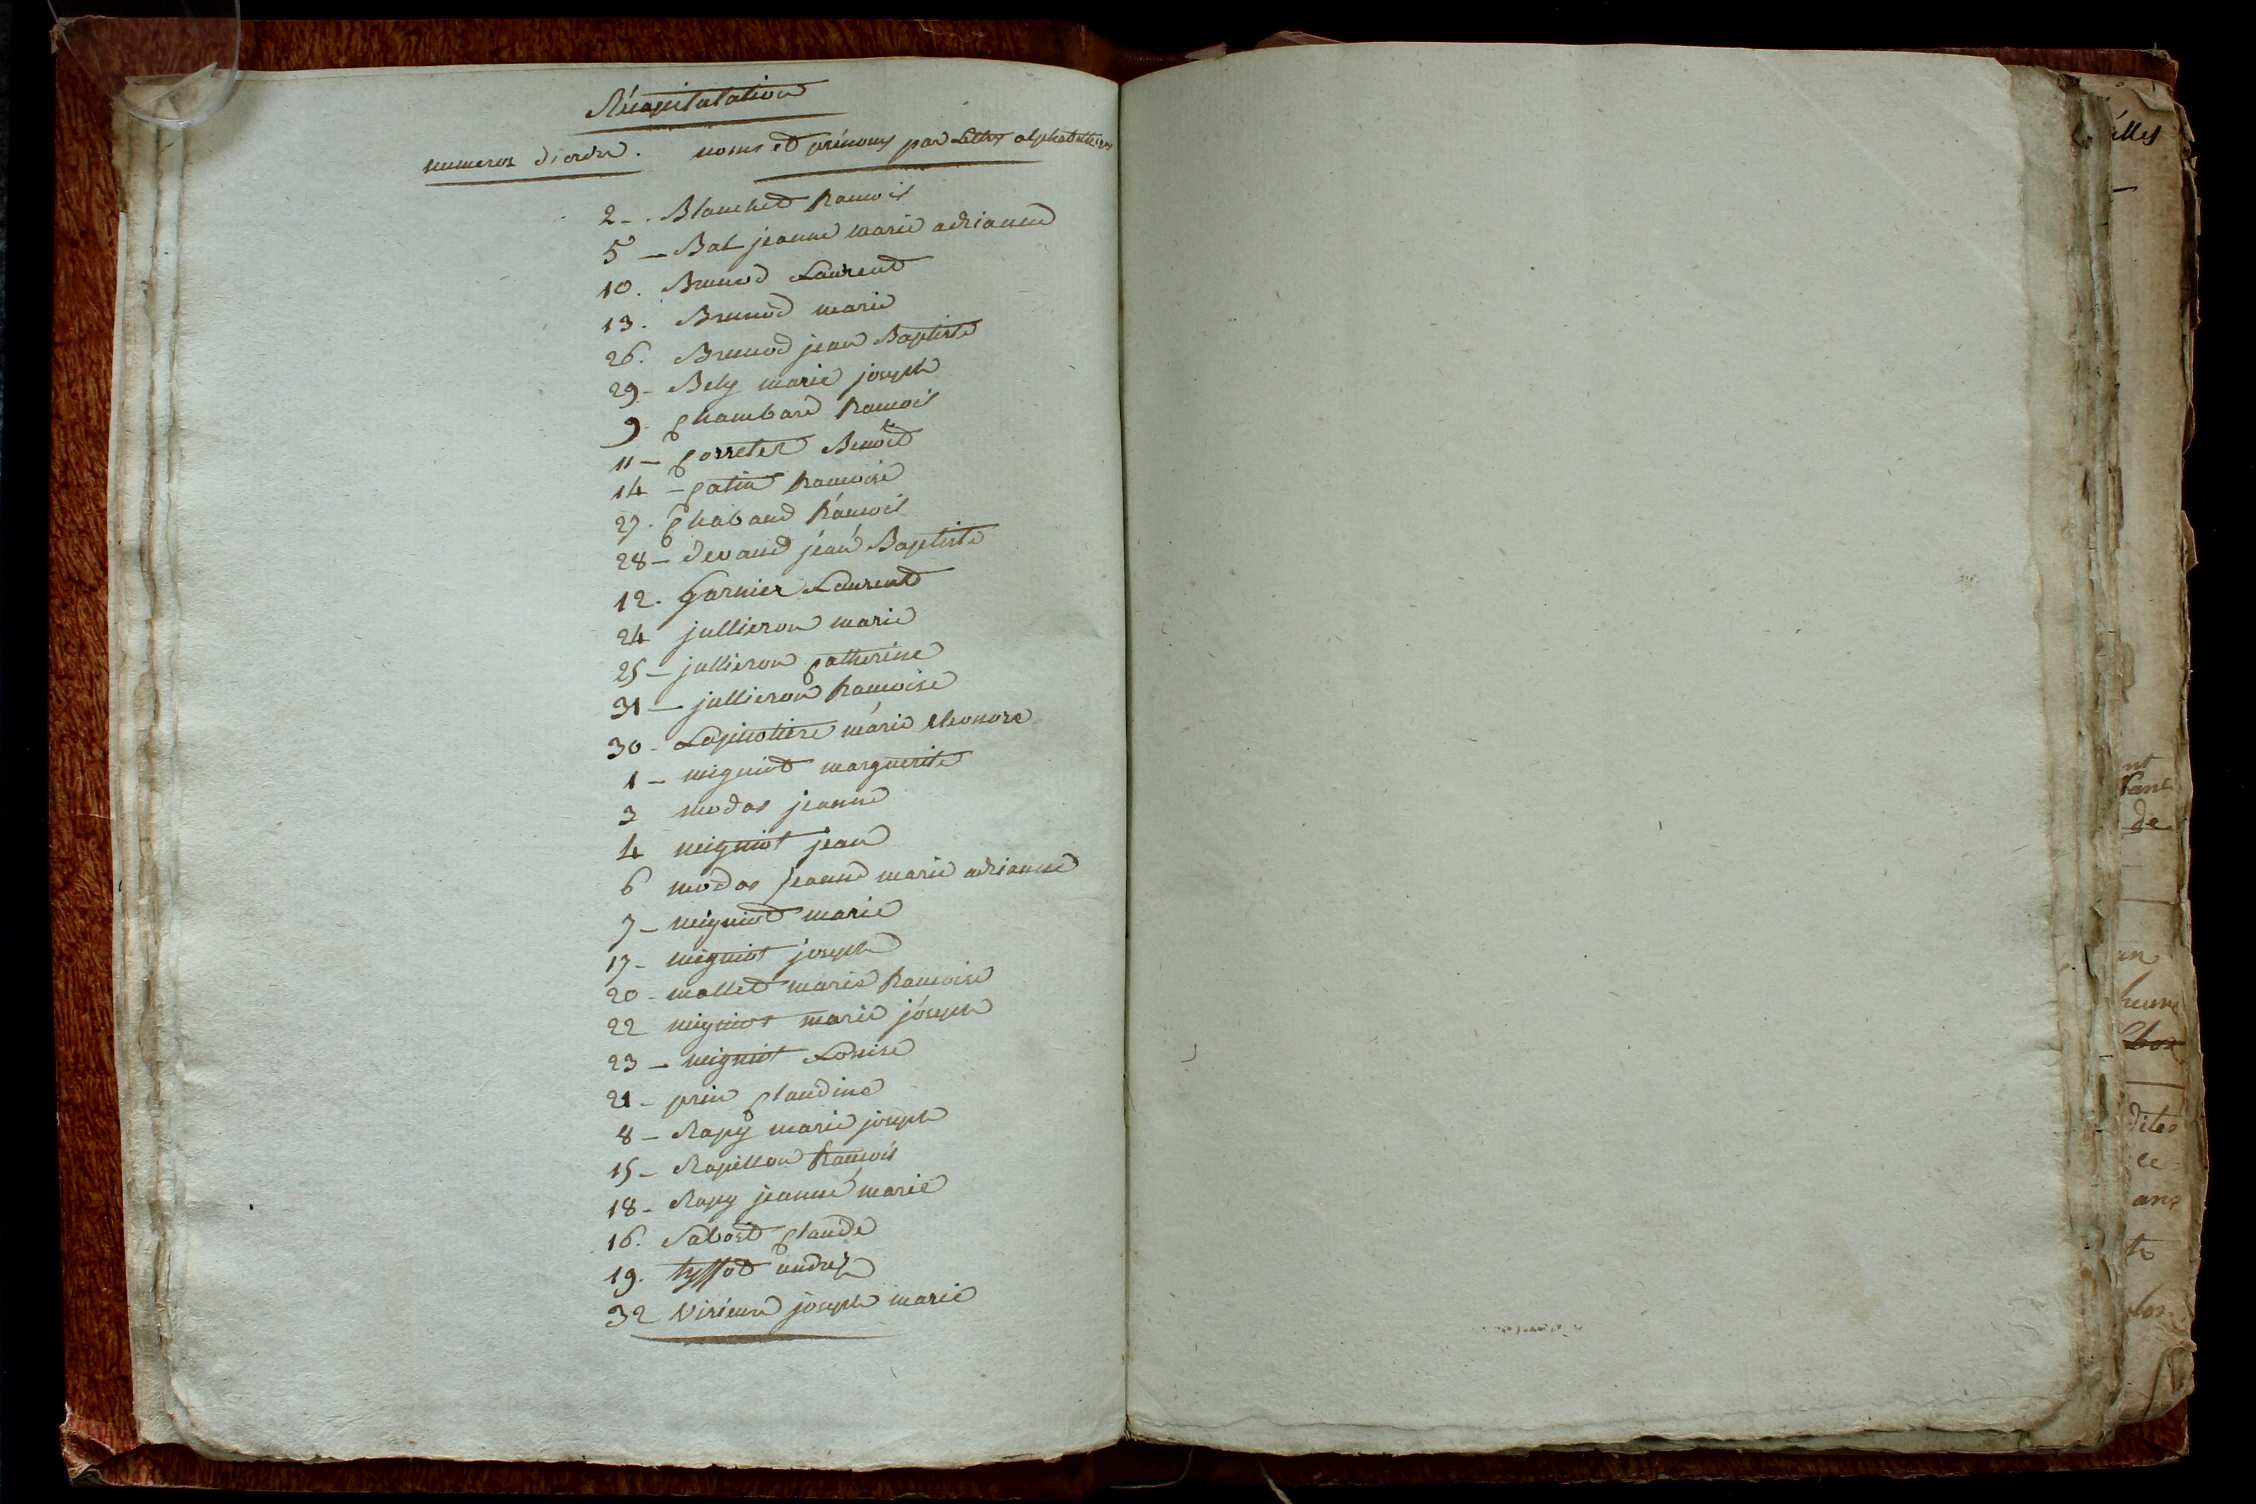 Récapitulation
numeros d'ordre. noms et prénoms par Lettres alphabettiques
2 - . Blanchet francois
5 - Bat jeanne marie adrianne
10. Brunod Laurend
13. Brunod marie
26. Brunod jean Baptiste
29 - Bely marie joseph
9 Chambard francois
11 - Correter Benoît
14 - Catin francoise
27. Chaband francois
28 - devaud jean Baptiste
12. Garnier Laurend
24 jullieron marie
25 - jullieron Catherine
31 - jullieron francoise
30 - Lapiotiere marie eleonore
1 - migniot marguerite
3 modas jeanne
4 migniot jean
6 modas jeanne marie adrianne
7 - migniot marie
17 - migniot joseph
20 - mallet marie francoise
22 migniot marie joseph
23 - migniot Louise
21 - prin Claudine
8 - Rapy marie joseph
15 - Rapillon francois
18 - Rapy jeanne marie
16. Sabost Claude
19. tyssot andre
32 Virieux joseph marie
illes
nt
de
un
heure
dites
ce
ans